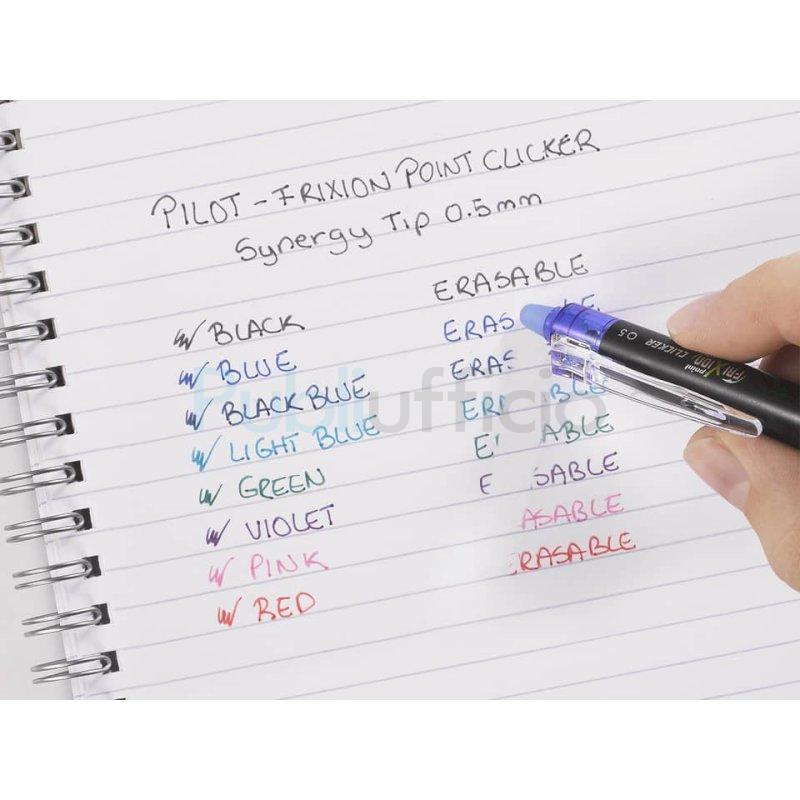 PILOT - FRIXION POINT CLICKER
Synergy Tip 0.5mm
ERASABLE
BLACK
ERAS BLE
BLUE
ERAS
BLACK BLUE
ER BLE
LIGHT BLUE
E ABLE
GREEN
E SABLE
VIOLET
ASABLE
PINK
RASABLE
RED
point FRIXION CLICKER 0.5
Publiufficio